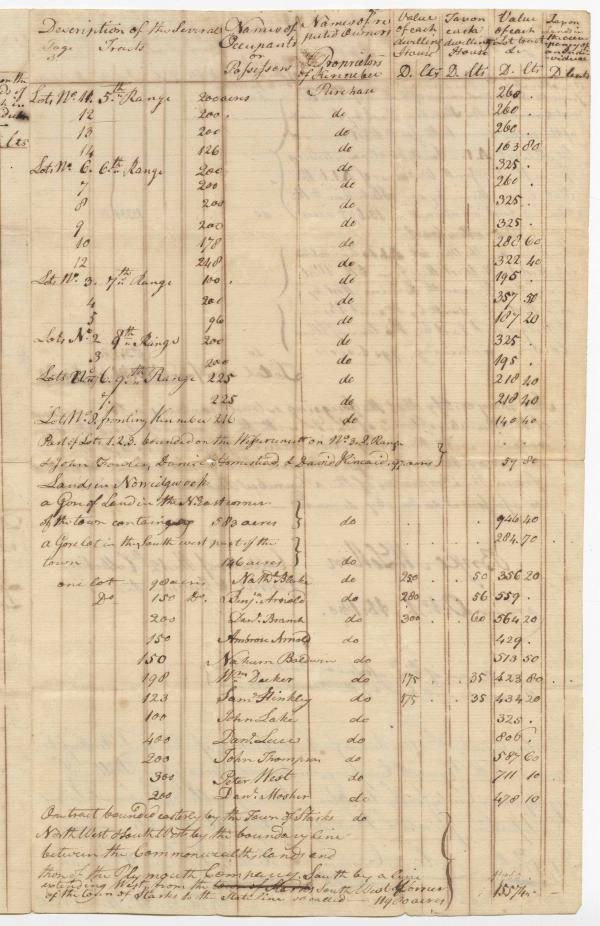 Description of the Several Names of Names of re Value Tax on Value Tax on
Page Tracts Occupants puted Owners of each each of each
3 or dwelling dwelling Lot tract
Possessors Proprietors House House &c
of Kennebec D. Cts D. Cts D. Cts D Cents
Purchase
Lots No. 11. 5th Range 200 acres 260 .
12 200 . do 260 .
13 200 do 260 .
14 126 do 163 80
Lots No. 6. 6th Range 200 do 325 .
7 200 do 260 .
8 200 do 325 .
9 200 do 325 .
10 178 do 288 60
12 248 do 322 40
Lots No. 3. 7th Range 100 . do 195 .
4 200 do 357 50
5 96 do 187 20
Lots No. 2 8th Range 200 do 325 .
3 200 do 195 .
Lots No. 6. 9th Range 225 do 218 40
225 do 218 40
Lots No. 3. fronting Kennebec 216 do 140 40
Part of Lots 1. 2. 3. bounded on the Wesserunsett on No. 3. 2. Range
& John Fowler, Daniel Homestead, & David Kincaid, 97 acres 57 80
Land in Norridgwock
a Gore of Land in the N. East corner
of the town containing 583 acres do 946 40
a Gore lot in the South west part of the 284. 70
town 146 acres do
one lot 98 acres Nathl. do 250 . . 50 356 20
Do 150 Do. Benja. Arnold do 280 . 56 559 .
200 Branch do 300 . . 60 564 20
150 Ambrose Arnold do 429 .
150 Nahum Baldwin do 513 50
198 Wm Decker do 175 . . 35 423 80
123 Saml. Hinkley do 175 . . 35 434 20
100 John Lake do 325 .
400 Danl. Luce do 806
200 John Thompson do 587 60
300 Peter West do 711 10
200 Danl. Mosher do 478 10
One tract bounded easterly by the Town of Starks do
North West & South West by the boundary line
between the Commonwealth, lands and
those of the Plymouth Company, South by a line
extending West, from the town of Starks South West Corner
of the town of Starks to the State line so called — 11980 acres 15574